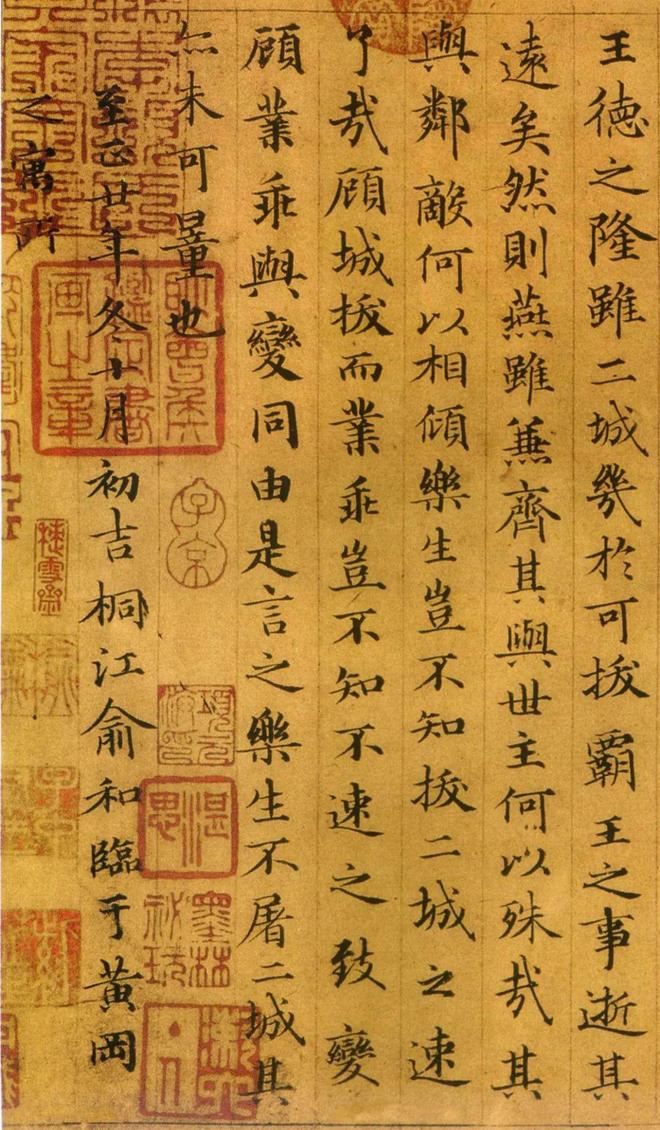 王德之隆雖二城幾於可拔霸王之事逝其
遠矣然則燕雖兼齊其與世主何以殊哉其
與鄰敵何以相傾樂生豈不知拔二城之速
了哉顧城拔而業乖豈不知不速之致變
顧業乖與變同由是言之樂生不屠二城其
亦未可量也
至正廿年冬十月初吉桐江俞和臨于黃岡
之寓所
子京
墨林祕玩